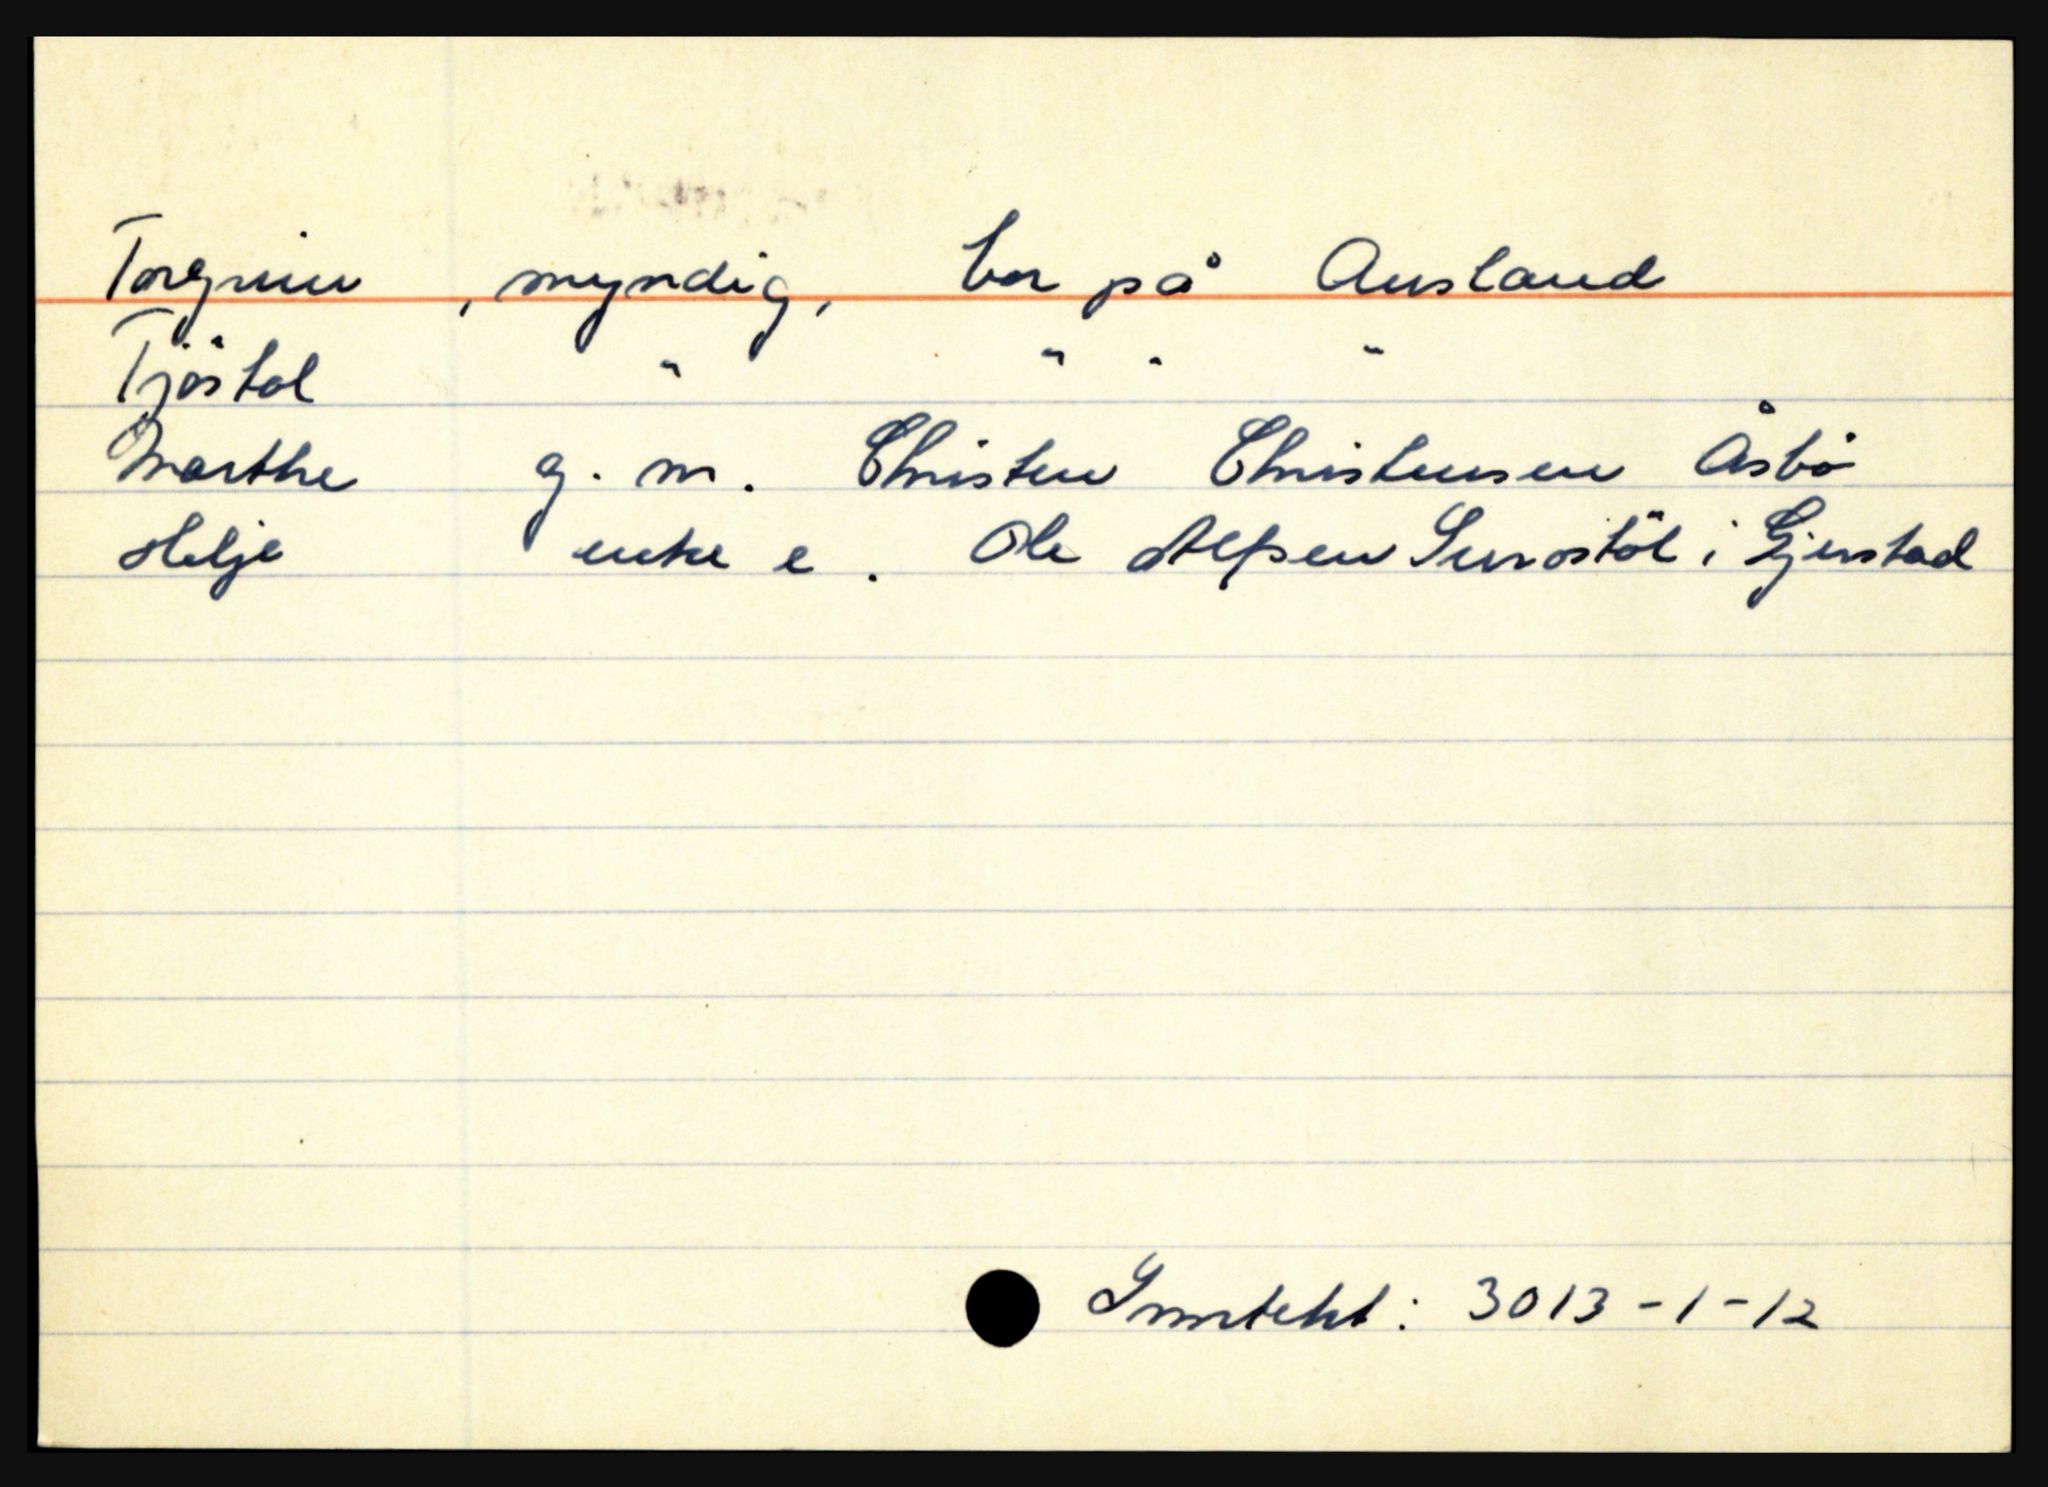 Torgrim, myndig, bor på Ausland
Tjöstol " " " "
Marthe g. m. Christen Christensen Åsbö
Helje enke e. Ole Alfsen i Gjerstad
Inntekt: 3013-1-12